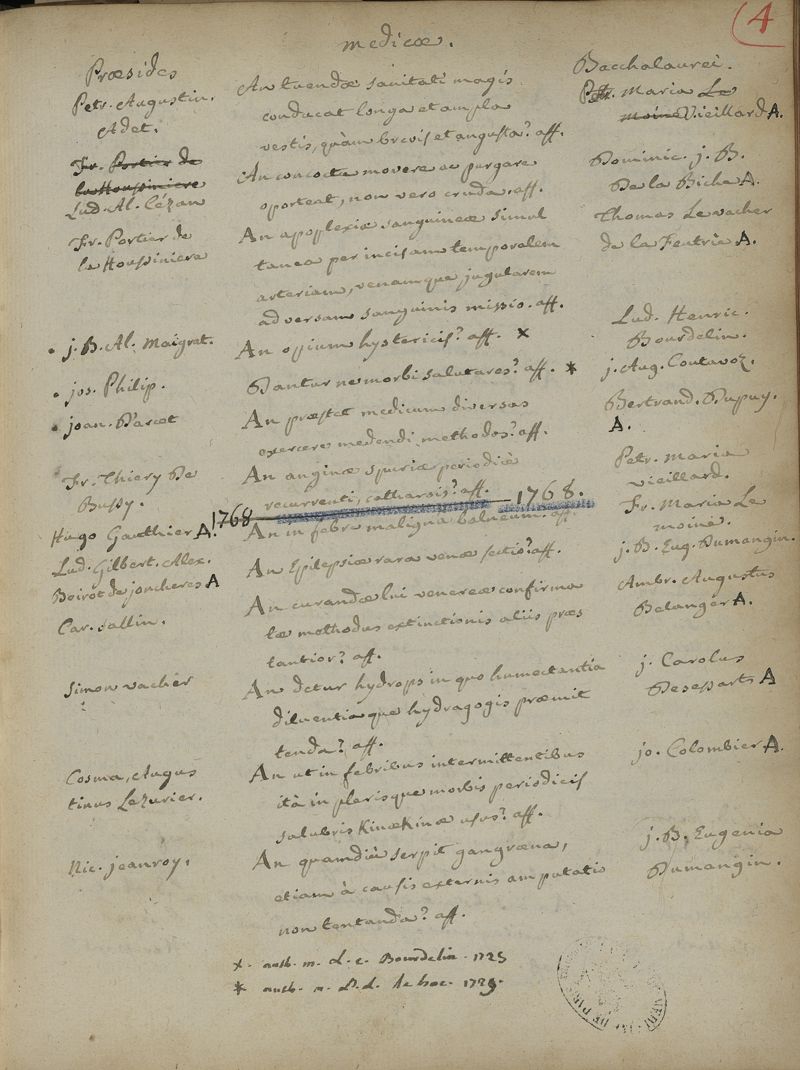 4
medicæ.
Præsides
Bacchalaurei.
Petr. Augustin.
Adet.
An tuendæ sanitati magis
conducat longa et ampla
vestis, quàm brevis et angusta? aff.
Petr. Maria Le
moine Vieillard A.
Fr. Portier de
la Houssiniere
Lud. Al. Cézan
An concocta movere ac purgare
oporteat, non vero cruda. aff.
Dominic. j. B.
De la Biche A.
Fr. Portier de
la Houssiniere
An apoplexiæ sanguineæ simul
tanea per incisam temporalem
arteriam, venamque jugularem
adversam sanguinis missio. aff.
Thomas Levacher
de la Feutrie A.
. j. B. Al. Maigrat.
An opium hystericis? aff. x
Lud. Henric.
Bourdelin.
. jos. Philip.
Dantur ne morbi salutares? aff. *
j. Aug. Coutavoz.
. joan. Darcet
An præstet medicum diversas
exercere medendi methodos? aff.
Bertrand. Dupuy.
A.
Fr. Thiery De
Bussy.
An anginæ spuriæ periodicè
recurrenti, catharsis? aff.
Petr. Maria
vieillard.
1768 1768.
Hugo Gauthier A.
An in febre maligna balneum. aff.
Fr. Maria Le
moine.
Lud. Gilbert. Alex.
Boirot de joncheres A
An Epilepsiæ rara venæ sectio? aff.
j. B. Eug. Dumangin.
Car. Sallin.
An curandæ lui venereæ confirma
tæ methodus extinctionis aliis præs
tantior? aff.
Ambr. Augustus
Belanger A.
Simon vacher
An detur hydrops in quo humectantia
diluentia que hydragogis præmit
tenda? aff.
j. Carolus
Desessarts A
Cosma, Augus
tinus Lezurier.
An ut in febribus intermittentibus
ità in plerisque morbis periodicis
salubris Kinækinæ usus? aff.
jo. Colombier A.
Nic. jeanroy.
An quamdiù serpit gangræna,
etiam à causis externis amputatio
non tentanda? aff.
j. B. Eugenia
Dumangin.
x. auth. m. L. c. Bourdelin. 1725